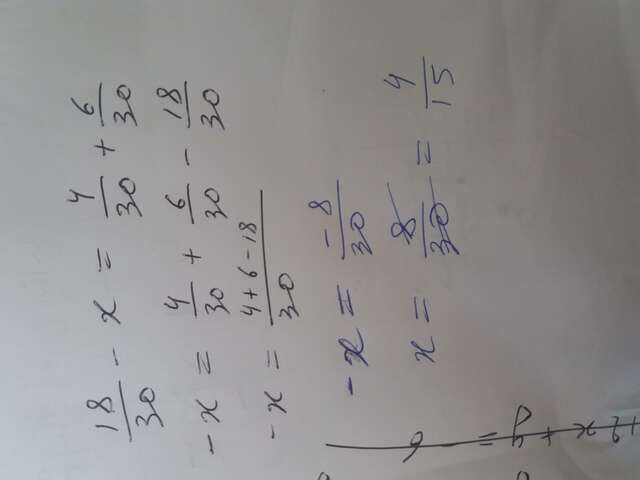 18/30 - x = 4/30 + 6/30
-x = 4/30 + 6/30 - 18/30
-x = 4+6-18/30
-x = -8/30
x = 8/30 = 4/15